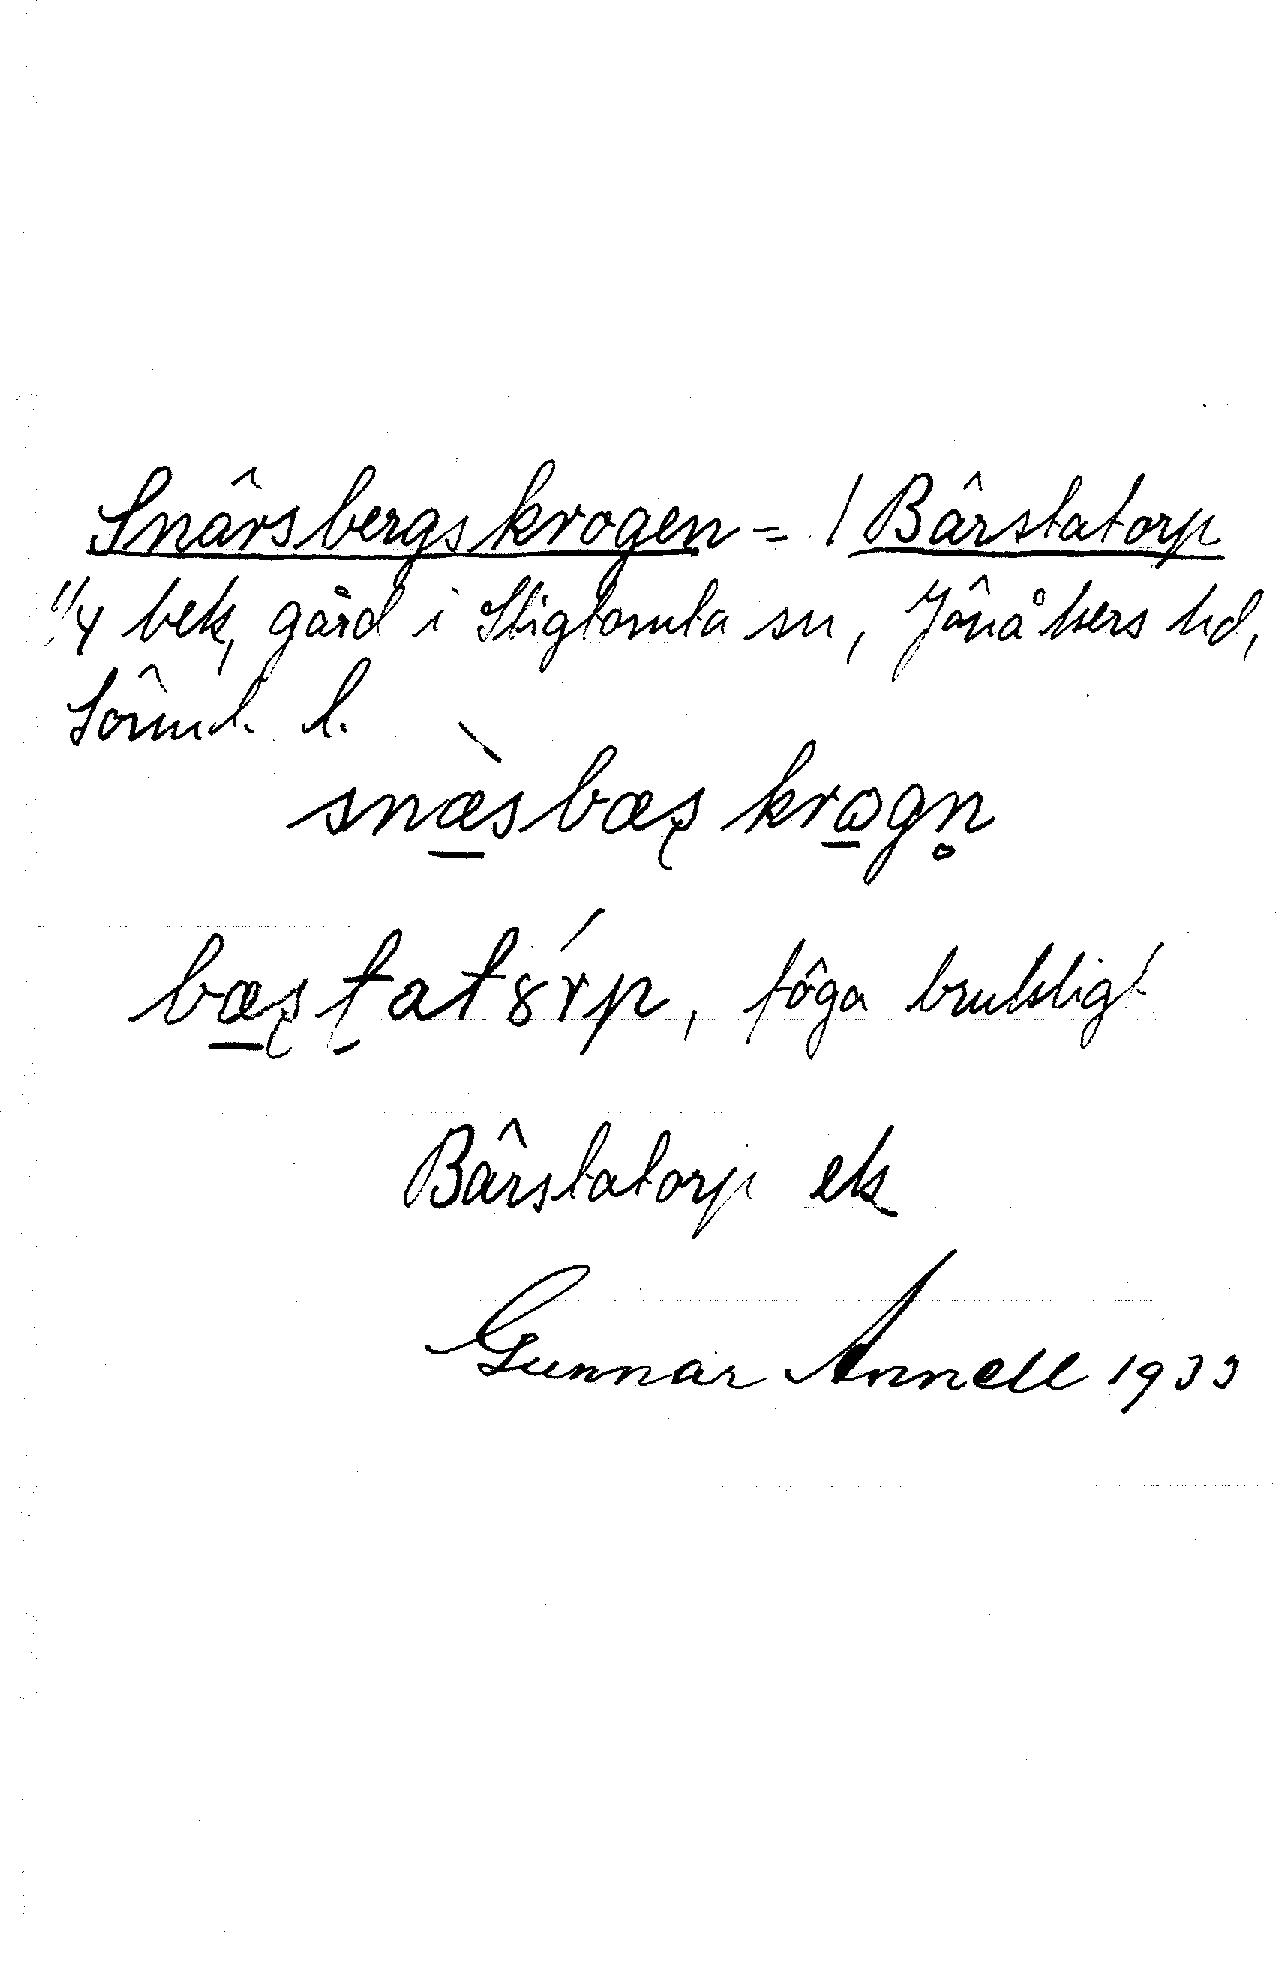 Snârsbergskrogen = / Bârstatorp
1/4 bek, gård i Stigtomta sn, Jônåkers hd,
Sôrml. l.
snæ̀sbæʂkrogn̥
bæʂʈatórp, föga brukligt
Bârstatorp ek
Gunnar Annell 1933